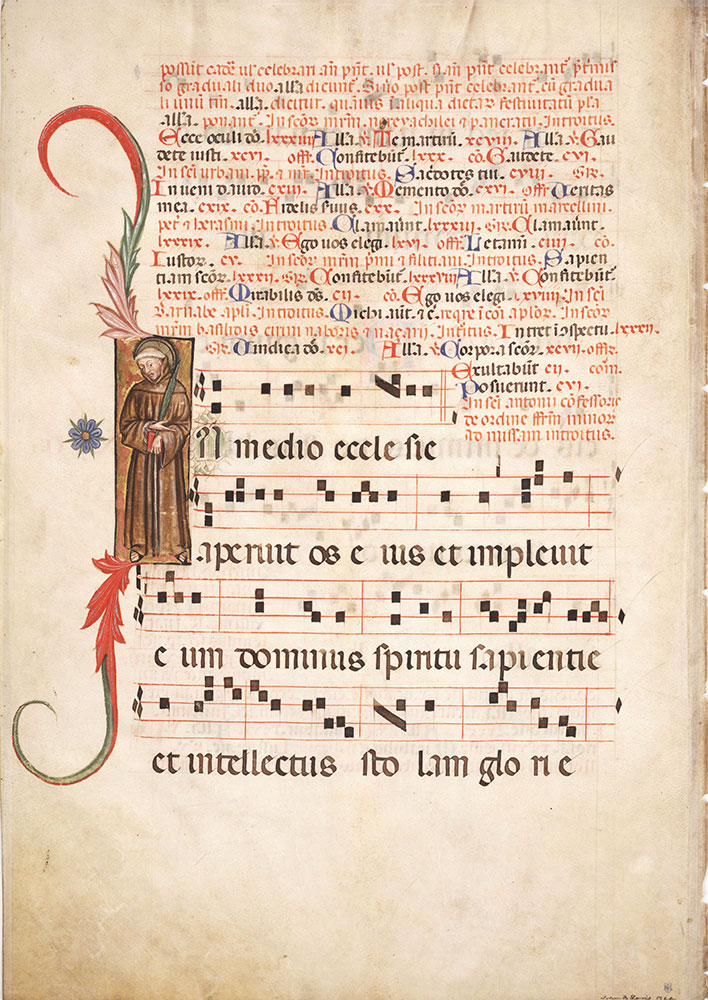 possunt cantari vel celebrari an̄ pn̄t. vel post. Nam pn̄t celebrant̄ p̄t̄mis
so graduali duo alla dicunt̄. Sivo post pn̄t celebrent̄. cū gradua
li unū tm̄. alla. dicitur. quāvis in aliqua dietar̄ festivitatū pla
alla. ponant̄. In scōr̄ mr̄m̄. nerei achilei ⁊ pancratii. Introitus.
Ecce oculi dn̄i. lxxxiii Alla. v̄. Te martirū. xcviii. Alla. v̄. Gau
dete iusti. xcvi. off̄. Confitebūt̄. lxxx. cō. Gaudete. cvi.
In scī urbani. pp̄. ⁊ mr̄. Introitus. Sacerdotes tui. cviii. Gr̄.
Inveni david. cxiii. Alla. v̄. Memento dn̄e. cxvi. off̄. Veritas
mea. cxix. cō. Fidelis servus. cxx. In scōr̄ martirū marcellini.
petri ⁊ herasmi. Introitus. Clamaver̄t. lxxxiii. Gr̄. Clamaver̄t.
lxxxix. Alla. v̄. Ego vos elegi. lxvi. off̄. Letamini. ciiii. cō.
Iustor̄. cv. In scōr̄ mr̄m̄ primi ⁊ feliciani. Introitus. Sapien
tiam scōr̄. lxxxii. Gr̄. Confitebūt̄. lxxxviii. Alla. v̄. Confitebūt̄.
lxxxix. off̄. Mirabilis ds̄. cii. cō. Ego vos elegi. lxviiii. In scī
Barnabe apl̄i. Introitus. Michi aut̄. ⁊ c̄. reqr̄e ī cōi ap̄lor̄. In scōr̄
mr̄m̄ basilidis cirini naboris ⁊ nazarii. Intr̄itus. Intret ī cōspectu. lxxxii.
Gr̄. Vindica dn̄e. xci. Alla. v̄. Corpora scōr̄. xcvii. off̄.
Exultabunt̄. cii. com̄.
Posuerunt. cvi.
In scī antonii cōfessoris
de ordine fr̄m̄ minor̄
ad missam introitus.
In medio eccle sie
aperuit os e ius et implevit
e um dominus spiritu sapientie
et intellectus sto lam glo ri e